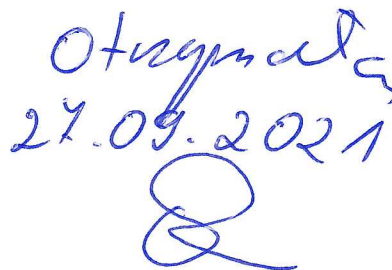 Otrzymałam
27.09.2021